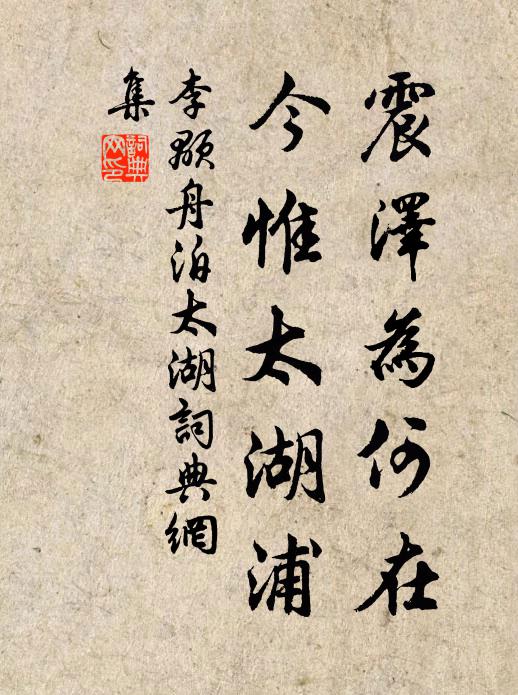 震澤為何在
今惟太湖浦
李顒舟泊太湖詞典網
集
詞典
网印